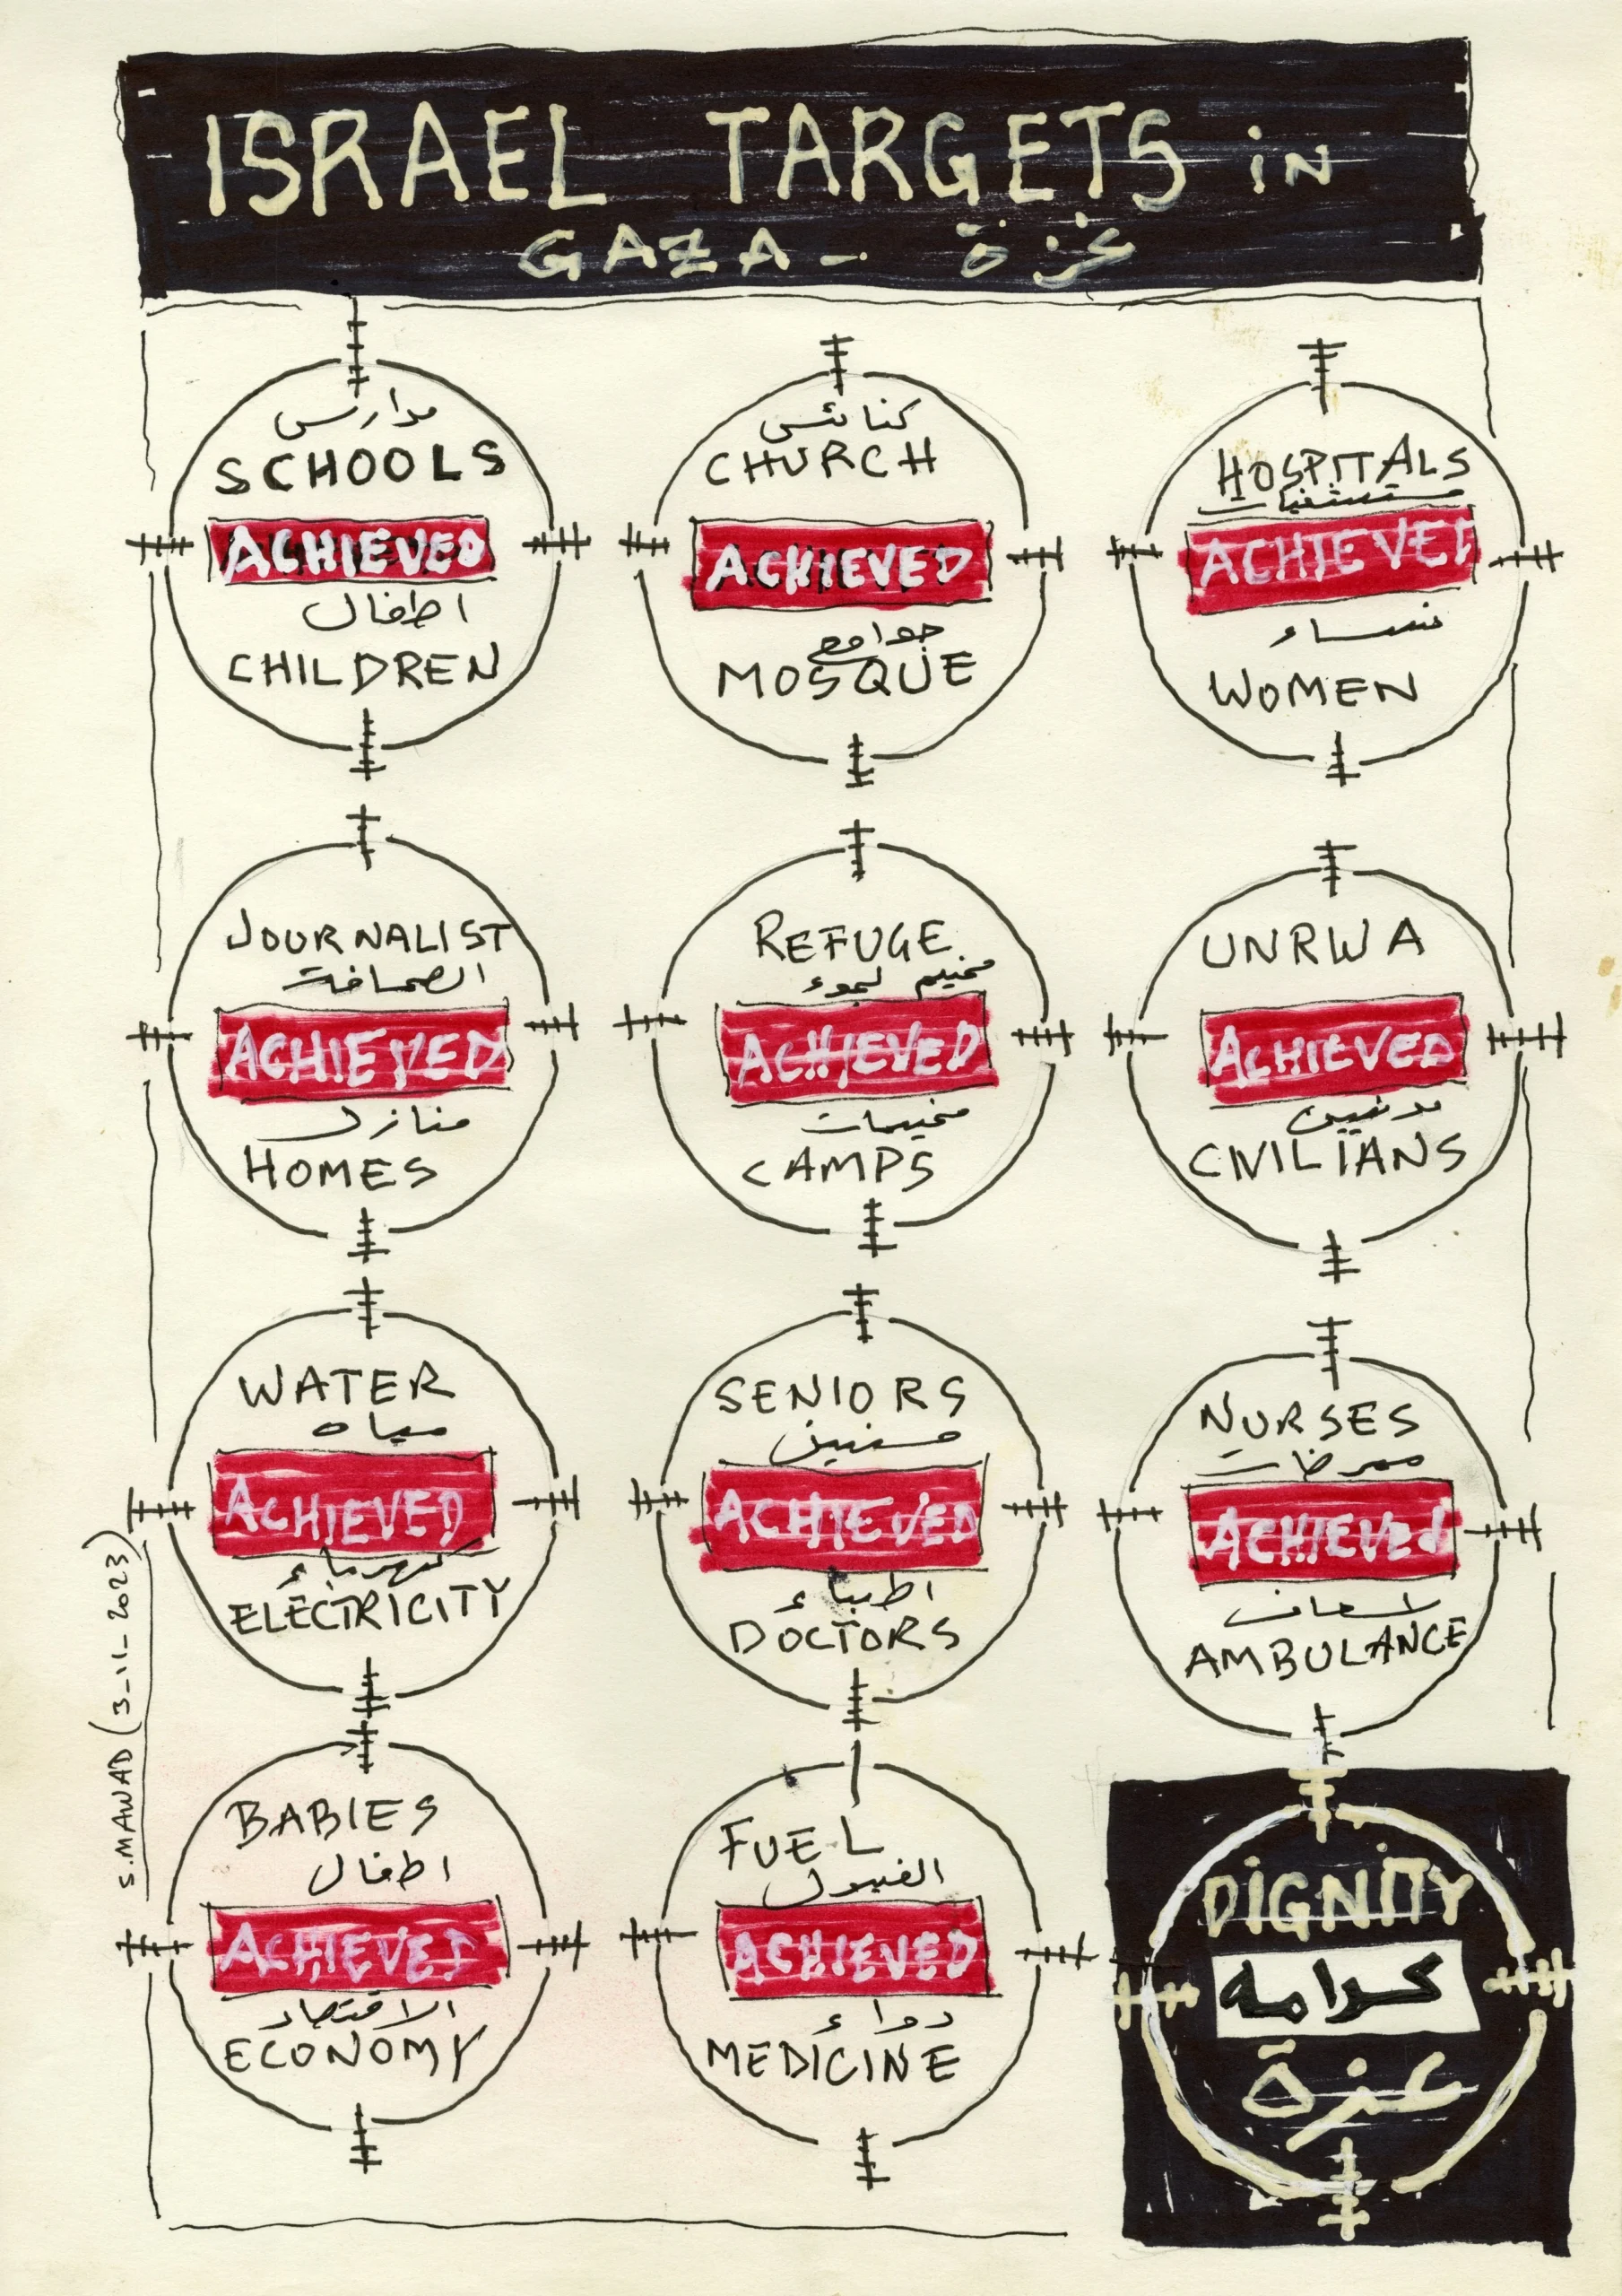 ISRAEL TARGETS iN
GAZA - غزة
مدارس
SCHOOLS
ACHIEVED
اطفال
CHILDREN
كنائس
CHURCH
ACHIEVED
جوامع
MOSQUE
HOSPITALS
مستشفيات
ACHIEVED
نساء
WOMEN
JOURNALIST
الصحافة
ACHIEVED
منازل
HOMES
REFUGE
مخيم لجوء
ACHIEVED
مخيمات
CAMPS
UNRWA
ACHIEVED
مدنيين
CIVILIANS
WATER
مياه
ACHIEVED
كهرباء
ELECTRICITY
SENIORS
مسنين
ACHIEVED
اطباء
DOCTORS
NURSES
ممرضات
ACHIEVED
اسعاف
AMBULANCE
BABIES
اطفال
ACHIEVED
الاقتصاد
ECONOMY
FUEL
الفيول
ACHIEVED
دواء
MEDICINE
DIGNITY
كرامه
غزة
S.MAWAD (3-11-2023)